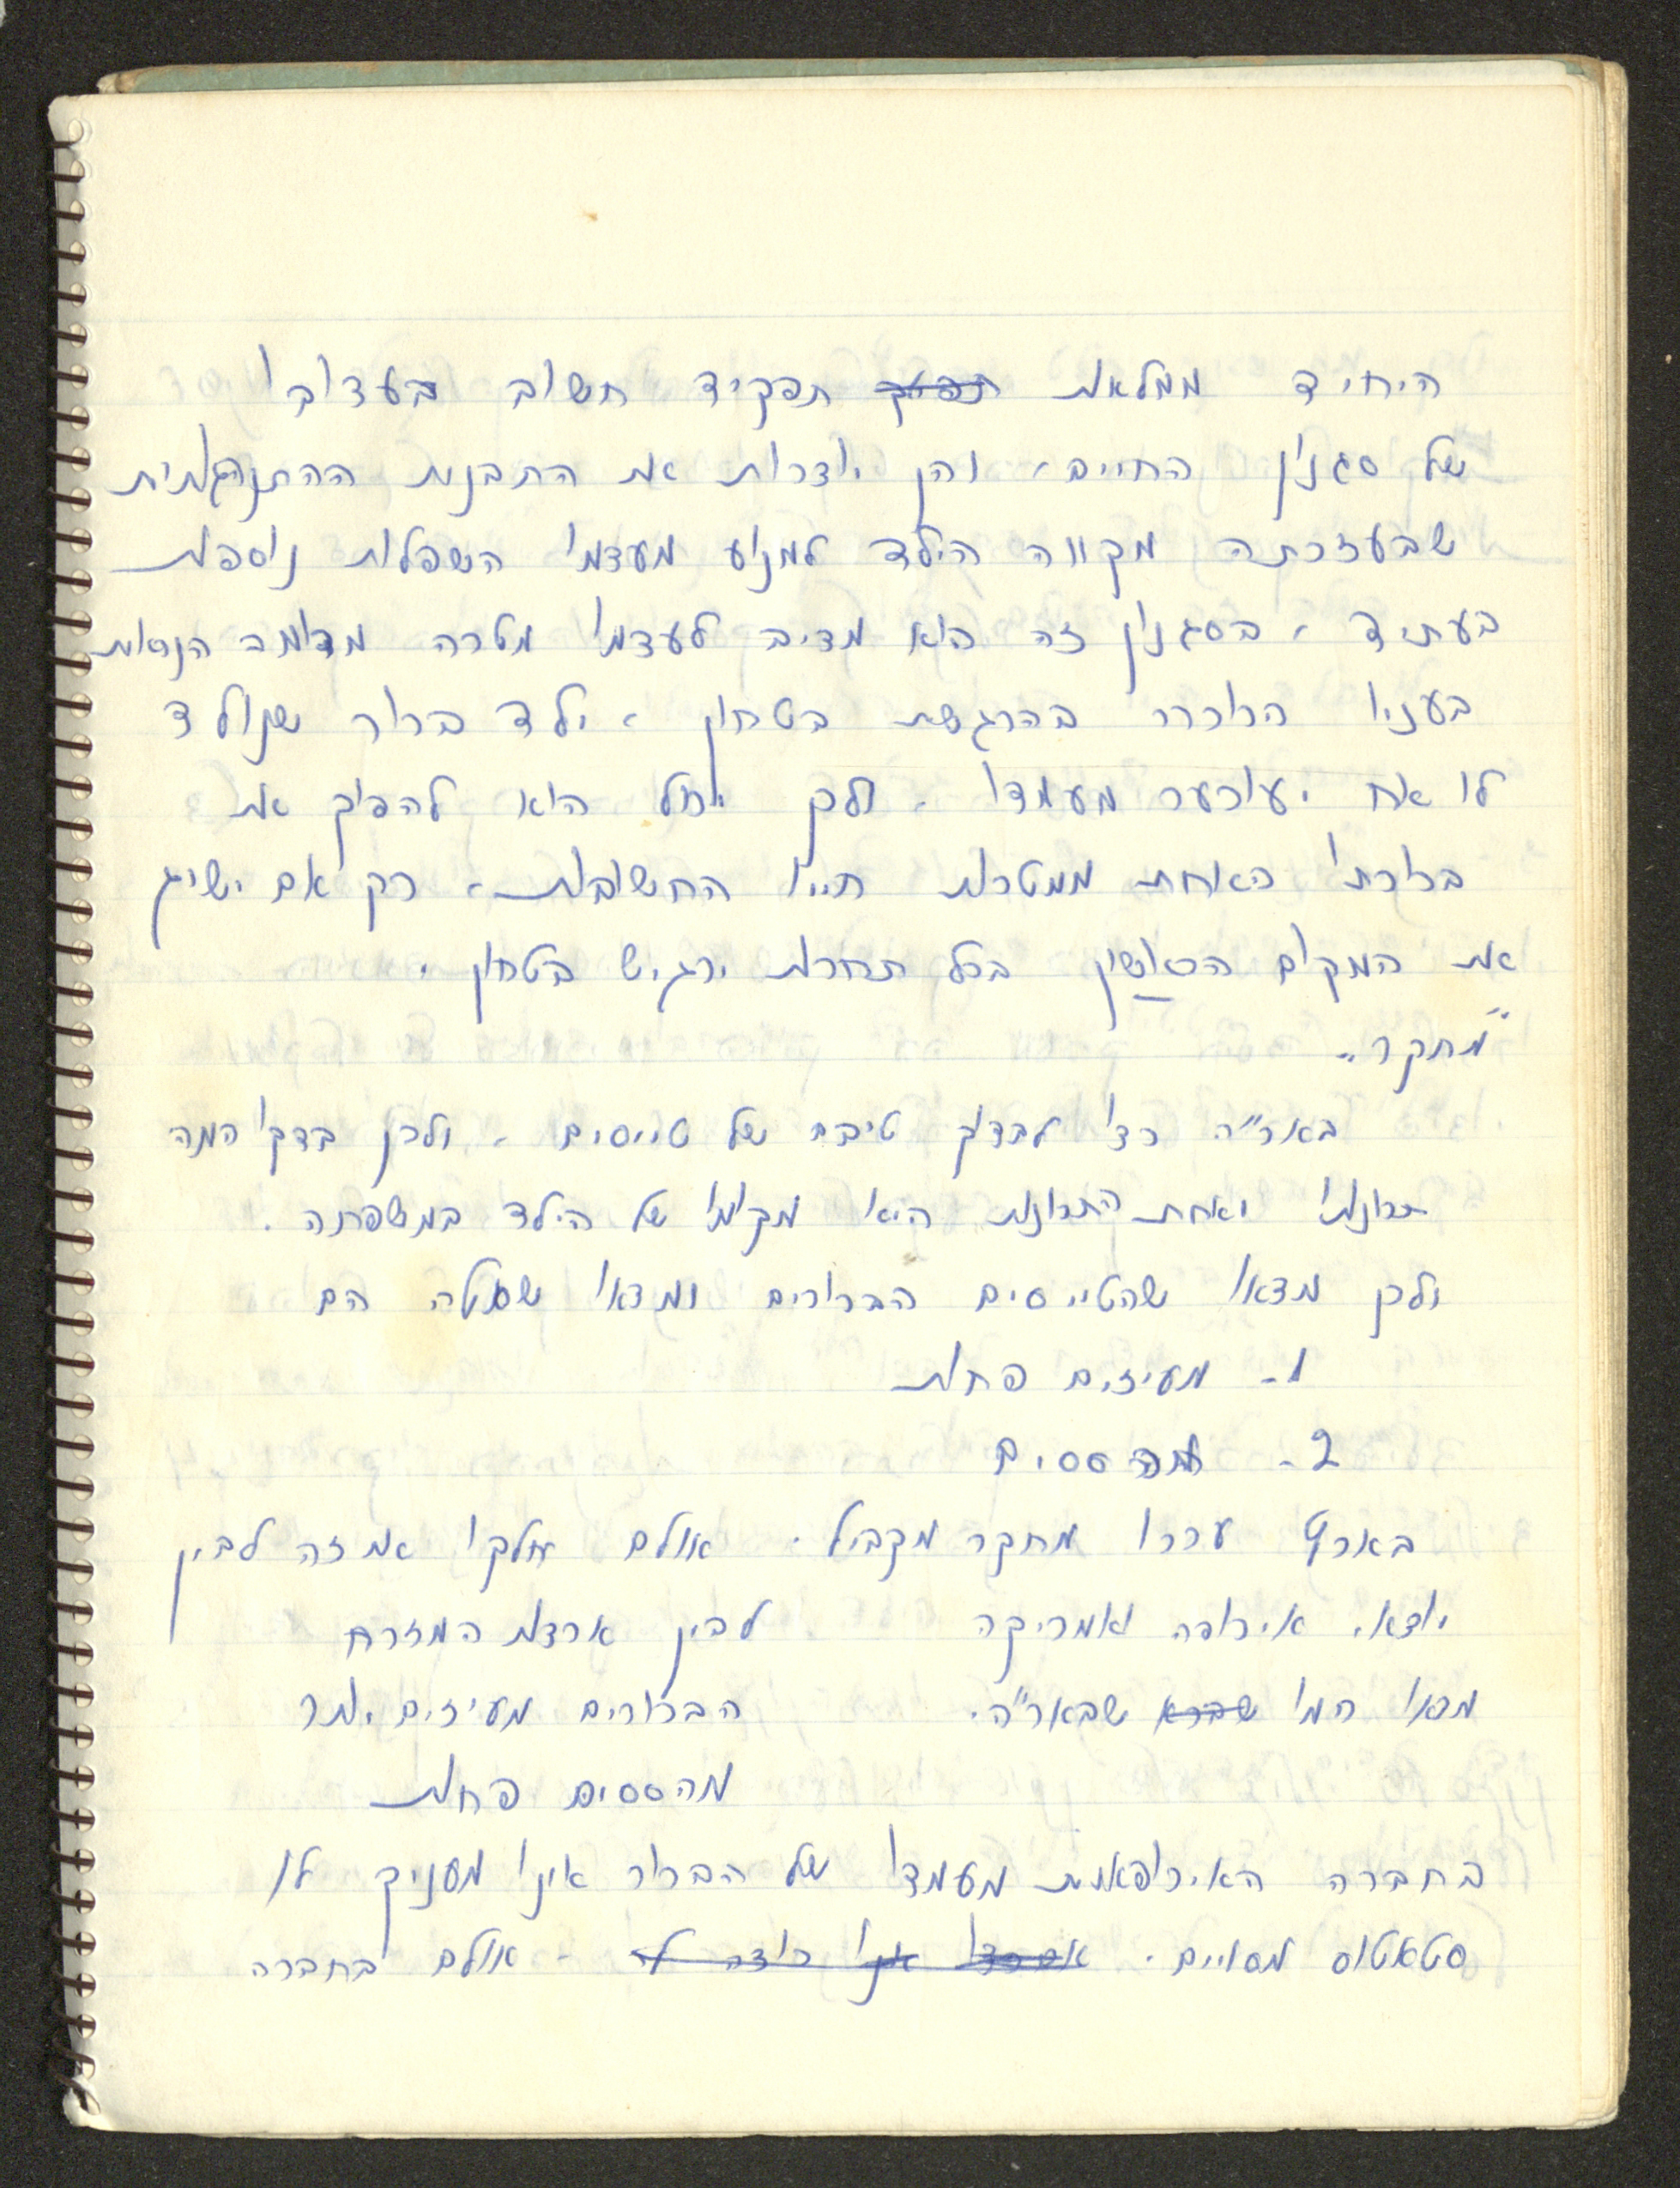 היחיד ממלאות תפקיד חשוב בעצובו
של סגנון החיים, והן יוצרות את התבנית ההתנהגותית
שבעזרתה מקווה הילד למנוע מעצמו השפלות נוספות
בעתיד. בסגנון זה הוא מציב לעצמו מטרה מדומה הנראית
בעניו הכרחי בהרגשת בטחון. ילד בכור שנולד
לו אח יעורער מעמדו. ולכן יכול הוא להפוך את
בכורתו האחת ממטרות חייו החשובות. רק אם ישיג
את המקום הראשון בכל תחרות ירגיש בטחון.
"מחקר"
באר"ה רצו לבדוק טיבם של טייסים. ולכן בדקו המה
תכונותיו ואחת התכונות היא מקומו של הילד במשפחה.
ולכן מצאו שהטייסים הבכורים ומצאו שאלה הם
1- מעיזים פחות
2- מהססים
בארץ ערכו מחקר מקביל. אולם חלקו את זה לבין
יוצאי אירופה ואמריקה לבין ארצות המזרח
מצאו כמו שבאר"ה. הבכורים מעיזים יותר
מהססים פחות
בחברה האירופאית מעמדו של הבכור אינו מעניק לו
סטאטוס מסויים. אולם בחברה